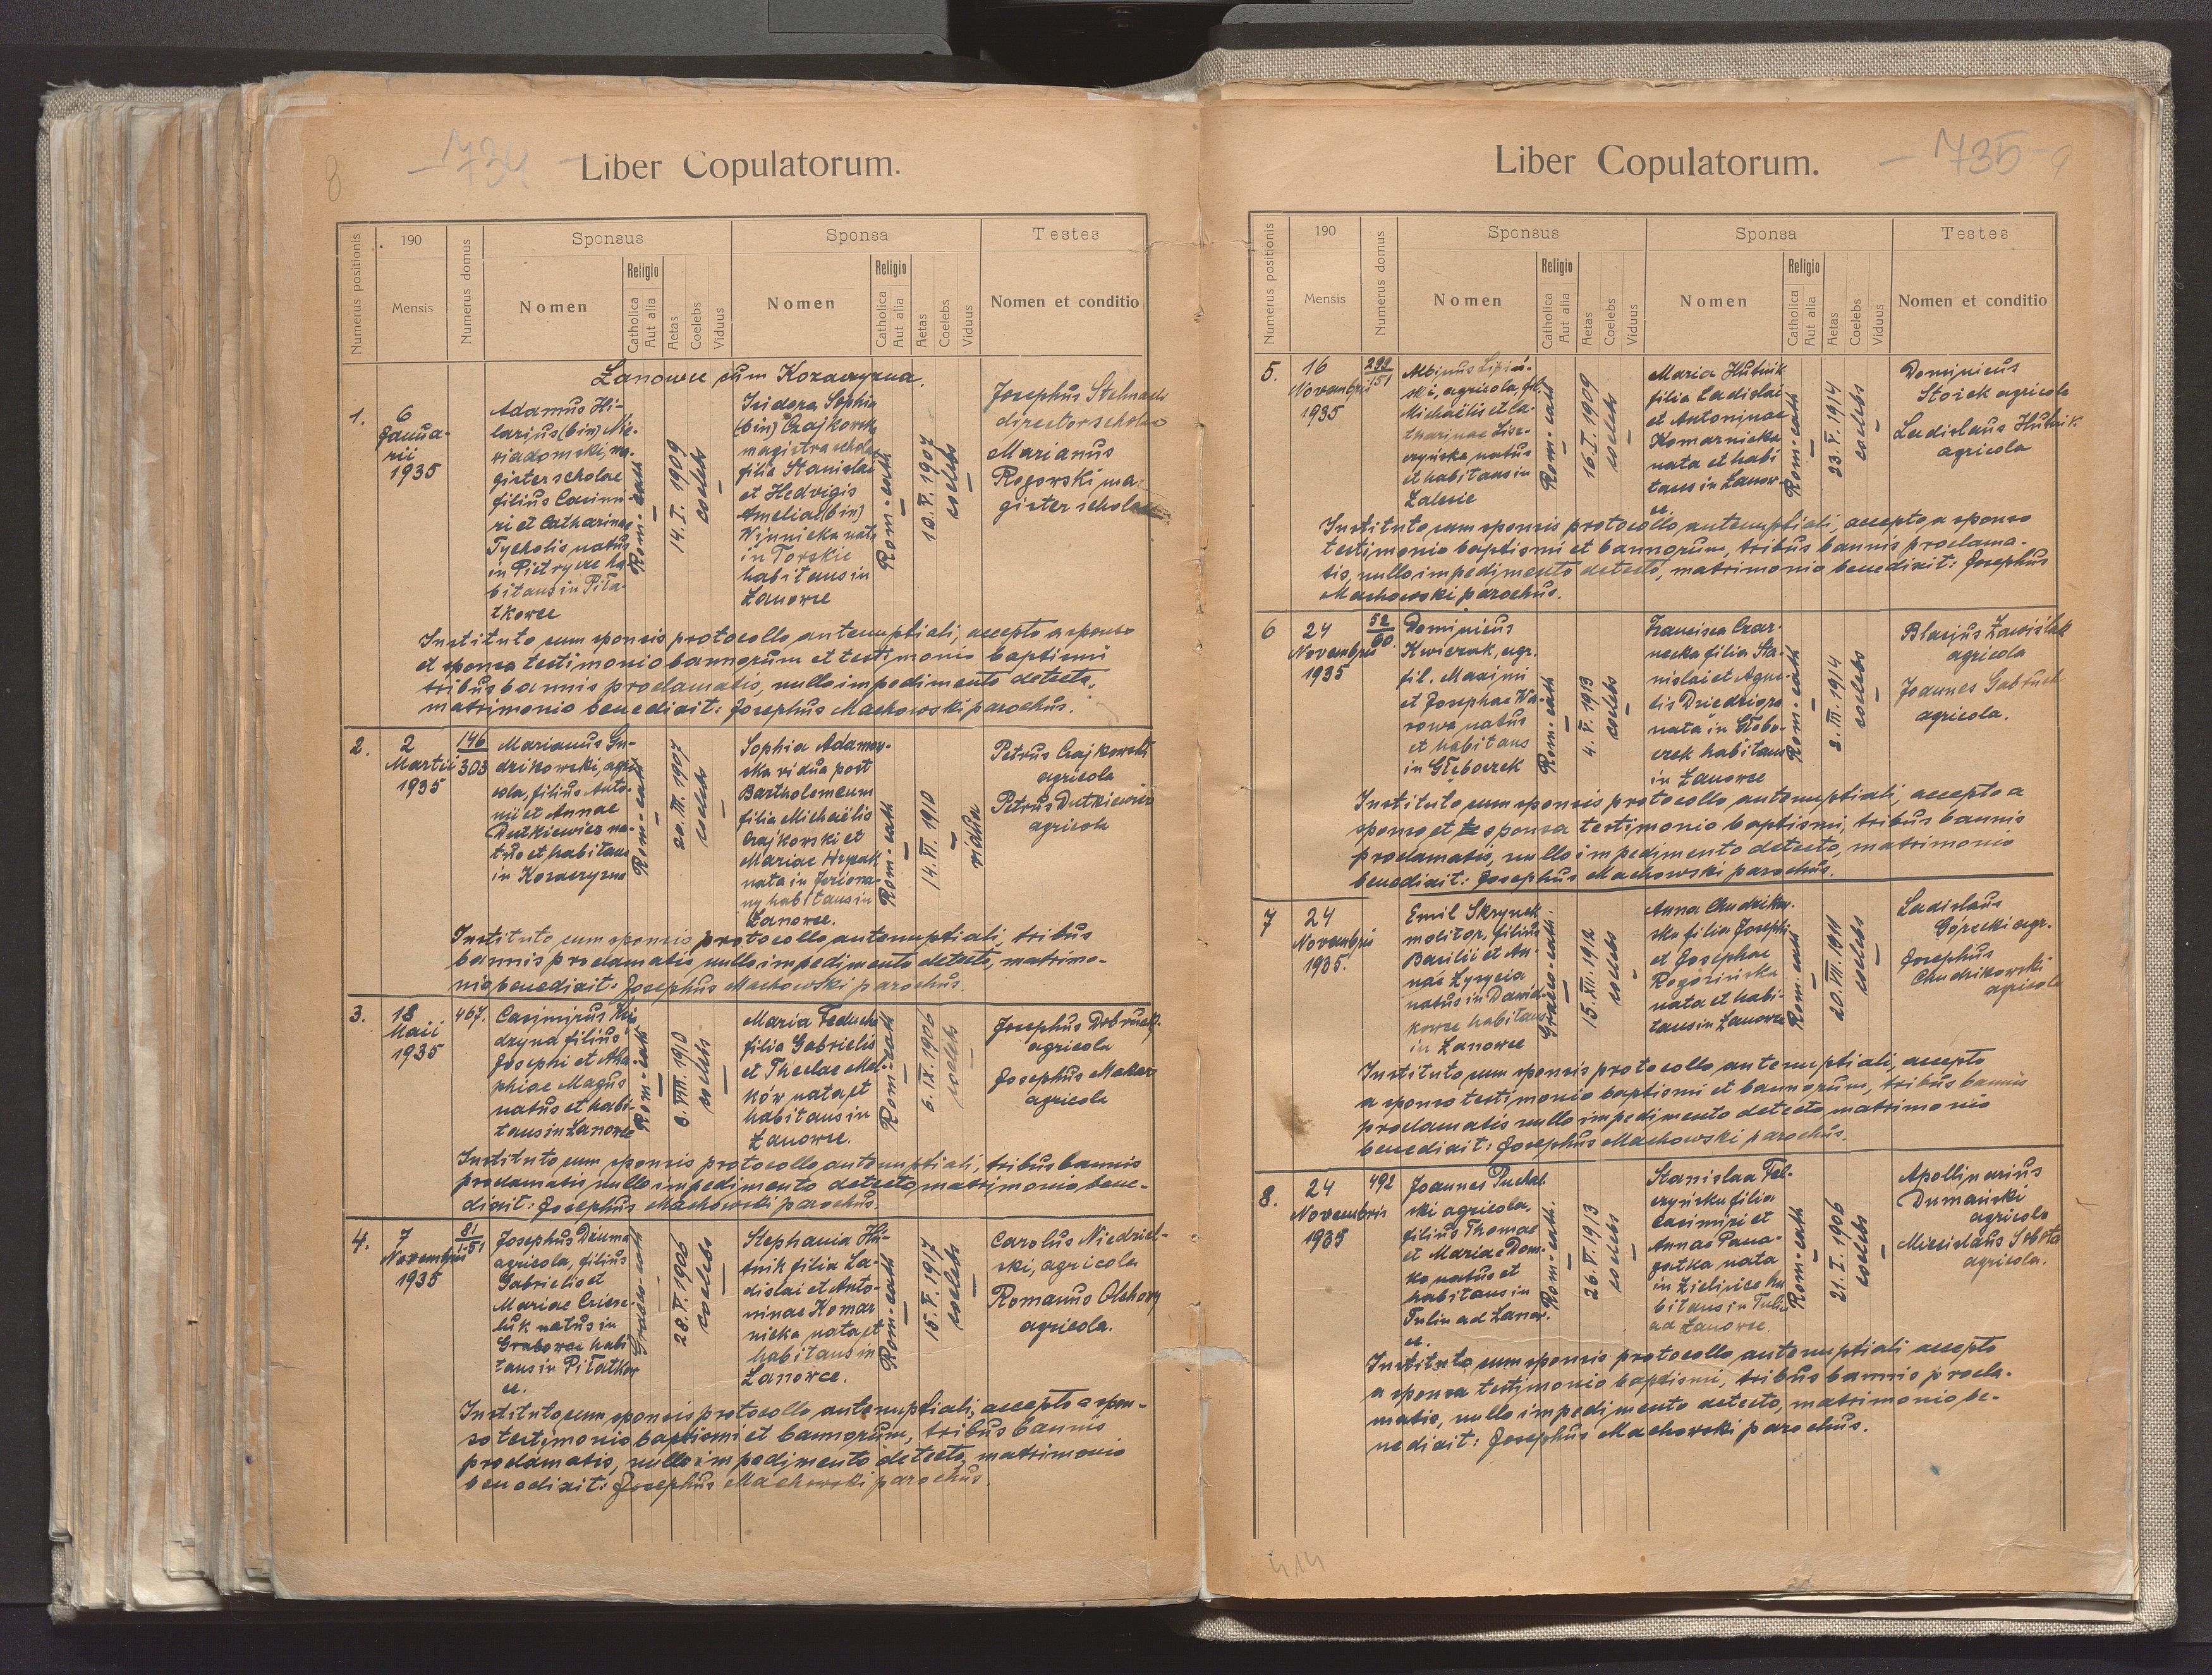 8
— 734 —
Liber Copulatorum.
Numerus positionis
190
Mensis
Numerus domus
Sponsus
Nomen
Religio
Catholica
Aut alia
Aetas
Coelebs
Viduus
Sponsa
Nomen
Religio
Catholica
Aut alia
Aetas
Coelebs
Viduus
Testes
Nomen et conditio
Łanowce cum Kozaczyzna.
1.
6
Janua-
rii
1935
Adamus Hi-
larius (bin) Nie-
wiadomski, ma-
gister scholae
filius Casimi-
ri et Catharinae
Tycholis natus
in Pietrycze ha
bitans in Piła-
tkowce
Rom-cath
14. I. 1909
coelebs
Isidora Sophia
(bin) Czajkowska
magistra scholae
filia Stanislai
et Hedvigis
Ameliae (bin)
Winnicka nata
in Torskie
habitans in
Łanowce
Rom-cath
10. V. 1907
coelebs
Josephus Stelmach
director scholae
Marianus
Rogowski ma-
gister scholae
Instituto cum sponsis protocollo antenuptiali, accepto a sponso
et sponsa testimonio bannorum et testimonio baptismi
tribus bannis proclamatis, nullo impedimento detecto,
matrimonio benedixit: Josephus Machowski parochus.
2.
2
Martii
1935
146
303
Marianus Gu-
dzikowski, agri
cola, filius Anto-
nii et Annae
Dutkiewicz na-
tus et habitans
in Kozaczyzna
Rom-cath
20. III. 1907
coelebs
Sophia Adamow-
ska vidua post
Bartholomeum
filia Michaëlis
Czajkowski et
Mariae Hrycak
nata in Jeziora-
ny habitans in
Łanowce.
Rom-cath
14. VI. 1910
vidua
Petrus Czajkowski
agricola
Petrus Dutkiewicz
agricola
Instituto cum sponsis protocollo antenuptiali, tribus
bannis proclamatis nullo impedimento detecto, matrimo-
nio benedixit: Josephus Machowski parochus.
3.
18
Maii
1935
467.
Casimirus
dzyna filius
Josephi et Aga
phiae Magus
natus et habi
tans in Łanowce
Rom-cath
8. VIII. 1910
coelebs
Maria Feducha
filia Gabrielis
et Theclae Mel-
ków nata et
habitans in
Łanowce.
Rom-cath
6. IX. 1906
coelebs
Josephus Dobrucki
agricola
Josephus
agricola
Instituto cum sponsis protocollo antenuptiali, tribus bannis
proclamatis nullo impedimento detecto, matrimonio bene-
dixit: Josephus Machowski parochus.
4.
7
Novembris
1935
81
151
Josephus Deuma
agricola, filius
Gabrielis et
Mariae
luk natus in
Grabowce habi
tans in Piłatkow
ce.
Graeco-cath
28. V. 1906
coelebs
Stephania Hu-
tnik filia La-
dislai et Anto-
ninae Komar
nicka nata et
habitans in
Łanowce.
Rom-cath
15. V. 1917
coelebs
Carolus Niedziel-
ski, agricola
Romanus Olchowy
agricola.
Instituto cum sponsis protocollo antenuptiali, accepto a spon-
so testimonio baptismi et bannorum, tribus bannis
proclamatis, nullo impedimento detecto, matrimonio
benedixit: Josephus Machowski parochus.
Liber Copulatorum.
— 735 —
9
Numerus positionis
190
Mensis
Numerus domus
Sponsus
Nomen
Religio
Catholica
Aut alia
Aetas
Coelebs
Viduus
Sponsa
Nomen
Religio
Catholica
Aut alia
Aetas
Coelebs
Viduus
Testes
Nomen et conditio
5.
16
Novembris
1935
151
Albinus Lipiń-
ski, agricola, fil.
Michaëlis et Ca-
tharinae Lisz-
czyńska natus
et habitans in
Zalesie
Rom-cath
16. I. 1909
coelebs
Maria Hutnik
filia Ladislai
et Antoninae
Komarnicka
nata et habi
tans in Łanow-
ce.
Rom-cath
23. V. 1914
coelebs
Dominicus
Stoiek agricola
Ladislaus Hutnik
agricola
Instituto cum sponsis protocollo antenuptiali, accepto a sponso
testimonio baptismi et bannorum, tribus bannis proclama-
tis, nullo impedimento detecto, matrimonio benedixit: Josephus
Machowski parochus.
6
24
Novembris
1935
52
60.
Dominicus
Kwiczak, agr.
fil. Maximi
et Josephae Wa-
rowa natus
et habitans
in Głęboczek
Rom-cath
4. V. 1913
coelebs
Francisca Czar-
necka filia Sta-
nislai et Agne-
tis Dziedzigra
nata in Głębo-
czek habitans
in Łanowce
Rom-cath
2. III. 1914
coelebs
Blasius Zawiślak
agricola
Joannes Gabruch
agricola.
Instituto cum sponsis protocollo antenuptiali, accepto a
sponso et sponsa testimonio baptismi, tribus bannis
proclamatis, nullo impedimento detecto, matrimonio
benedixit: Josephus Machowski parochus.
7
24
Novembris
1935.
Emil Skrynek
molitor, filius
Basilii et An-
nas Zyzycia
natus in Dawid-
kowce habitans
in Łanowce
Graeco-cath.
15. XII. 1912
coelebs
Anna Chudziko-
ska filia Josephi
et Josephae
Rogozińska
nata et habi-
tans in Łanowce
Rom-cath
20. VIII. 1911
coelebs
Ladislaus
Górecki agr.
Josephus
Chudzikowski
agricola
Instituto cum sponsis protocollo antenuptiali, accepto
a sponso testimonio baptismi et bannorum, tribus bannis
proclamatis nullo impedimento detecto matrimonio
benedixit: Josephus Machowski parochus.
8.
24
Novembris
1935
492
Joannes Puchal
ski agricola,
filius Thomae
et Mariae Dom
ko natus et
habitans in
Tulin ad Łanow-
ce.
Rom-cath.
26. VI. 1913
coelebs
Stanislaa Fel-
czyńska filia
Casimiri et
Annae Pana-
zotka nata
in Zielińce ha
bitans in Tulin
ad Łanowce.
Rom-cath
21. I. 1906
coelebs
Apollinarius
Dumański
agricola
Miecislaus Sobota
agricola.
Instituto cum sponsis protocollo antenuptiali accepto
a sponsa testimonio baptismi, tribus bannis procla-
matis, nullo impedimento detecto, matrimonio be-
nedixit: Josephus Machowski parochus.
414